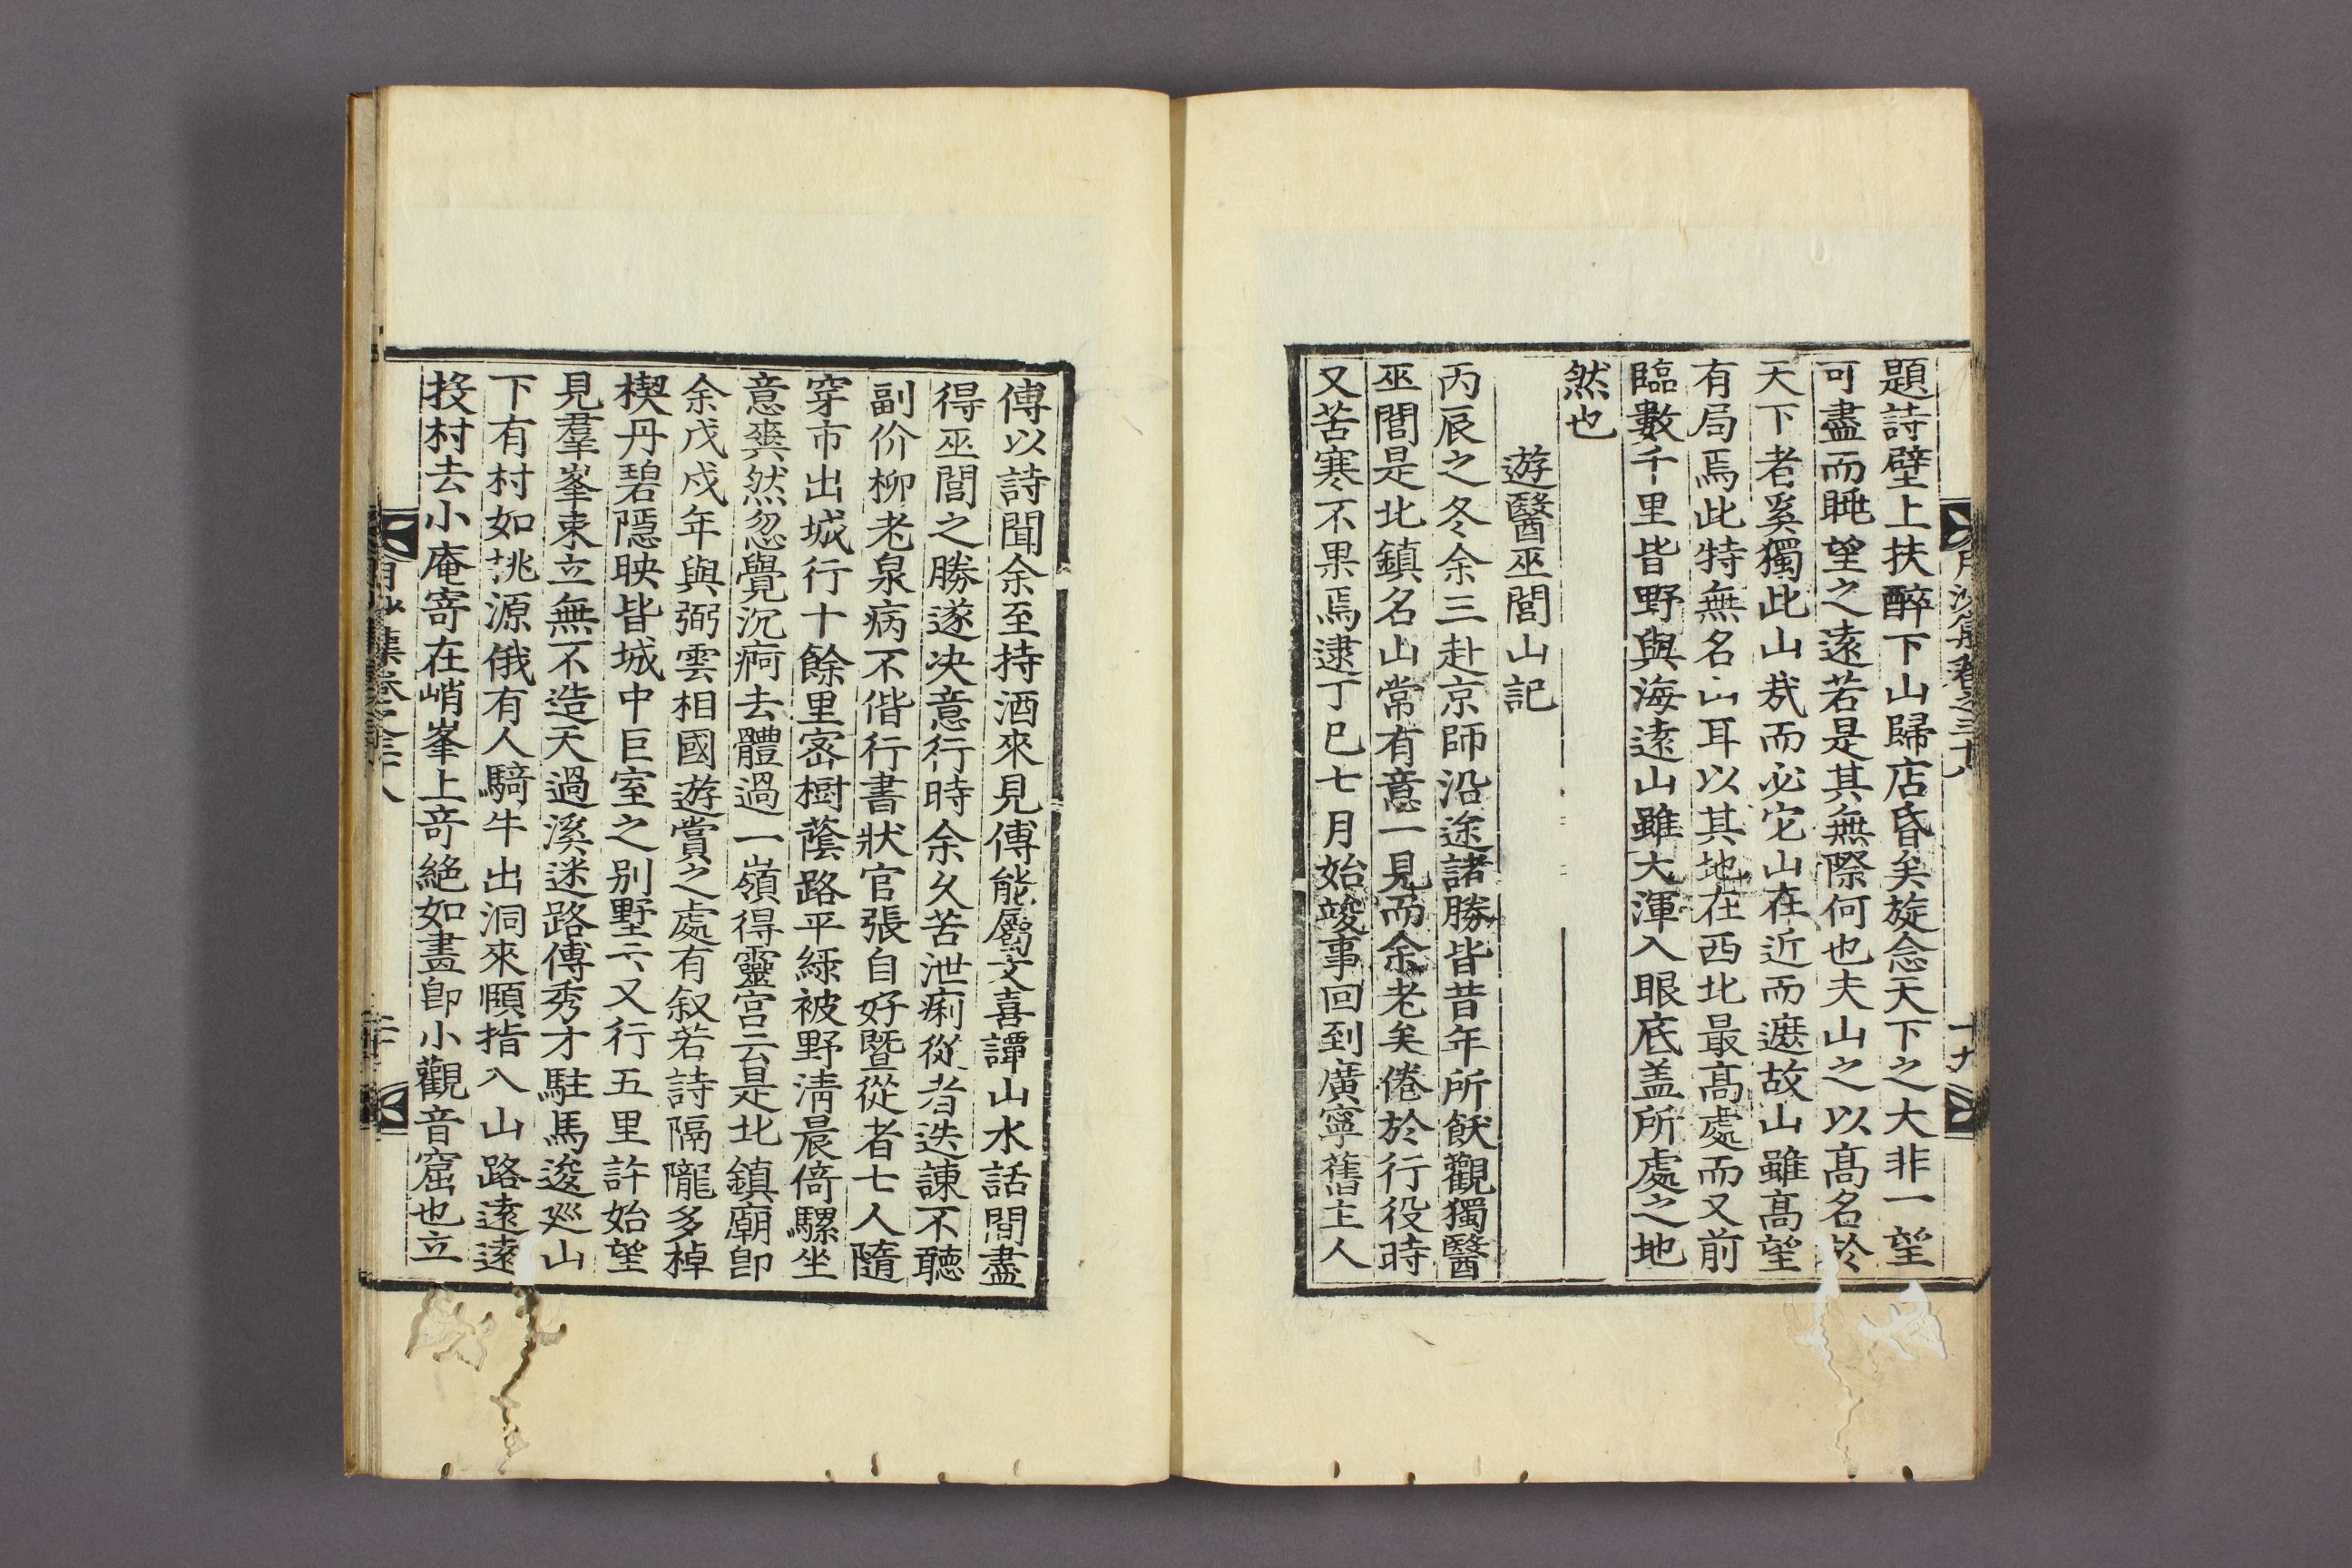 月沙集卷之三十八
十九
題詩壁上扶醉下山歸店昏矣旋念天下之大非一望
可盡而睡望之遠若是其無際何也夫山之以高名於
天下者奚獨此山㢤而必它山在近而遮故山雖高望
有局焉此特無名山耳以其地在西北最高處而又前
臨數千里皆野與海遠山雖大渾入眼底盖所處之地
然也
遊醫巫閭山記
丙辰之冬余三赴京師沿途諸勝皆昔年所飫觀獨醫
巫閭是北鎮名山常有意一見而余老矣倦於行役時
又苦寒不果焉逮丁巳七月始竣事回到廣寧舊主人
傅以詩聞余至持酒來見傅能屬文喜譚山水話間盡
得巫閭之勝遂决意行時余久苦泄痢從者迭諫不聽
副价柳老泉病不偕行書狀官張自好暨從者七人隨
穿市出城行十餘里密樹蔭路平綠被野淸晨倚騾坐
意爽然忽覺沉痾去體過一嶺得靈宫云是北鎮廟卽
余戊戌年與弼雲相國遊賞之處有叙若詩隔隴多棹
楔丹碧隱映皆城中巨室之别墅云又行五里許始望
見羣峯束立無不造天過溪迷路傅秀才駐馬逡廵山
下有村如桃源俄有人騎牛出洞來頤指入山路遠遠
投村去小庵寄在峭峯上竒絶如畫卽小觀音窟也立
月沙集卷之三十八
二十